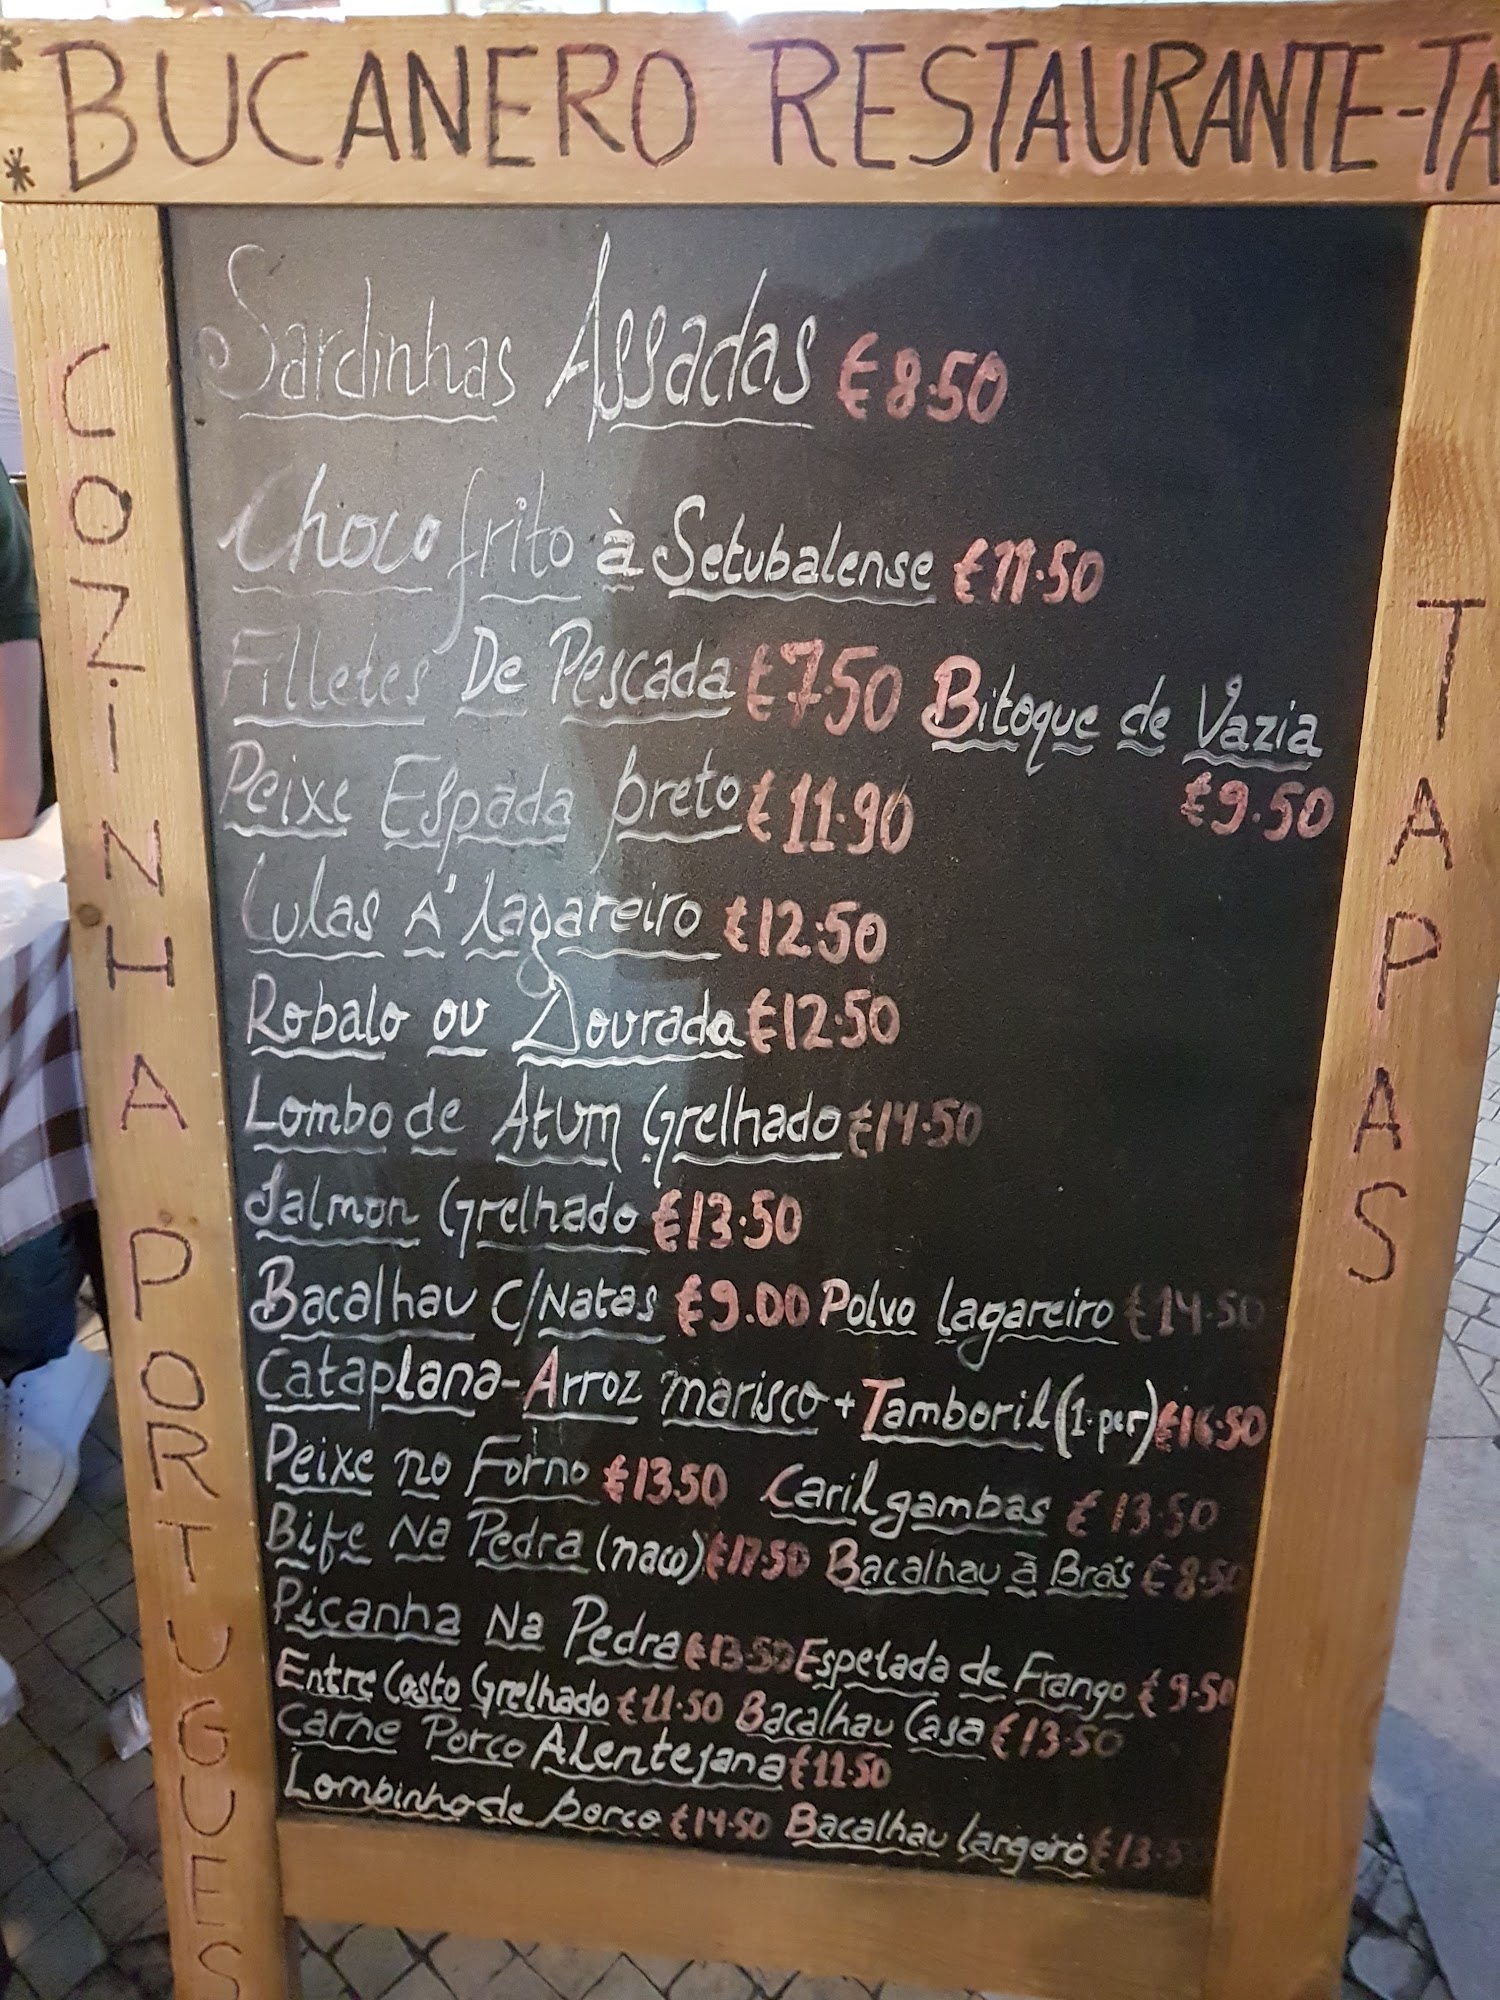 * BUCANERO RESTAURANTE-TA
*
COZINHA PORTUGUES
TAPAS
Sardinhas Assadas €8.50
Choco frito à Setubalense €11.50
Filletes De Pescada €7.50 Bitoque de Vazia
€9.50
Peixe Espada preto €11.90
Lulas A' lagareiro €12.50
Robalo ou Dourada €12.50
Lombo de Atum Grelhado €14.50
Salmon Grelhado €13.50
Bacalhau C/Natas €9.00 Polvo lagareiro €14.50
Cataplana-Arroz marisco + Tamboril (1.per) €16.50
Peixe no Forno €13.50 Caril gambas €13.50
Bife Na Pedra (naco) €17.50 Bacalhau à Brás €8.50
Picanha Na Pedra €13.50 Espetada de Frango €9.50
Entre Costo Grelhado €11.50 Bacalhau Casa €13.50
Carne Porco Alentejana €11.50
Lombinho de porco €14.50 Bacalhau largeró €13.5